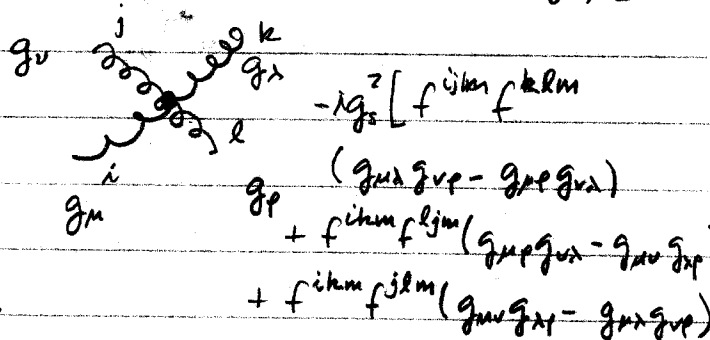 j
k
g_ν
g_λ
-i g_s^2 [ f^{ijm} f^{klm}
l
i
g_μ
g_ρ
(g_{μλ} g_{νρ} - g_{μρ} g_{νλ})
+ f^{ikm} f^{ljm} (g_{μρ} g_{νλ} - g_{μν} g_{λρ}
+ f^{ikm} f^{jlm} (g_{μν} g_{λρ} - g_{μλ} g_{νρ})